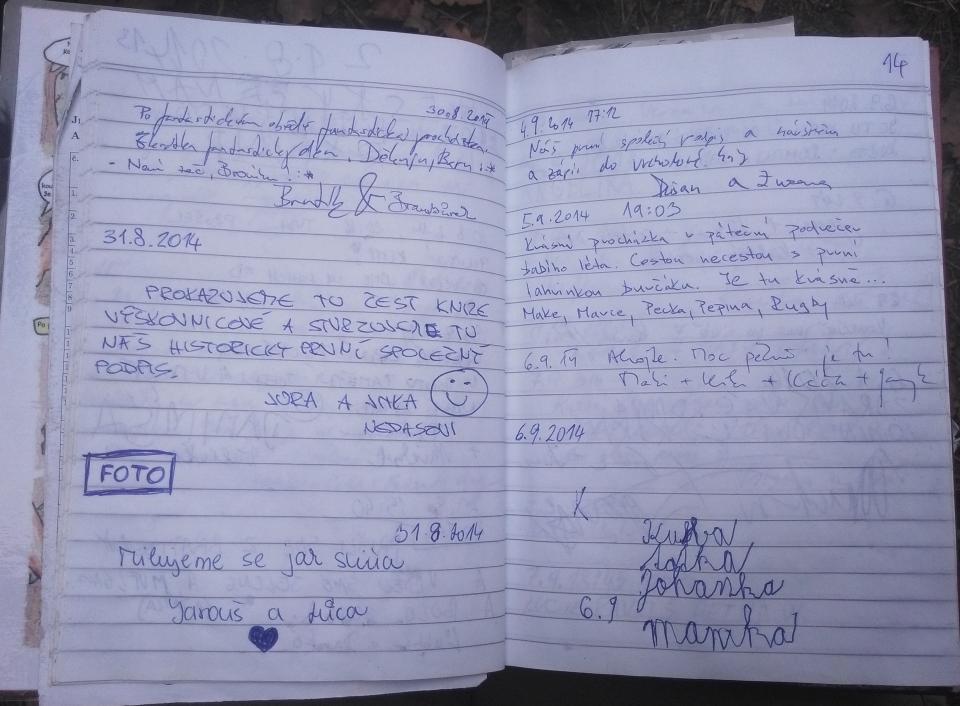 30.8.2014
Po fantastickém obědě fantastická procházka.
Zkrátka fantastický den. Děkuju, :*
- Není zač, :*
&
31.8.2014
PROKAZUJEME TU ČEST KNIZE
VÝSKOVNICOVÉ A STVRZUJEME TU
NÁŠ HISTORICKY PRVNÍ SPOLEČNÝ
PODPIS.
JURA A JITKA
NEDASOVI
FOTO
31.8.2014
Milujeme se jar sviňa
Jarouš a Lůca
14
4.9.2014 17:12
Náš první společný podpis a
a zápis do vrcholové
a Zuzana
5.9.2014 19:03
Krásná procházka v páteční podvečer
babího léta. Cestou necestou s první
lahvinkou burčáku. Je tu krásně...
Make, Pecka, Pepina, Rugby
6.9.14 Ahojte. Moc pěkně je tu!
+ + +
6.9.2014
K
Kubka
Johanka
6.9
mamka